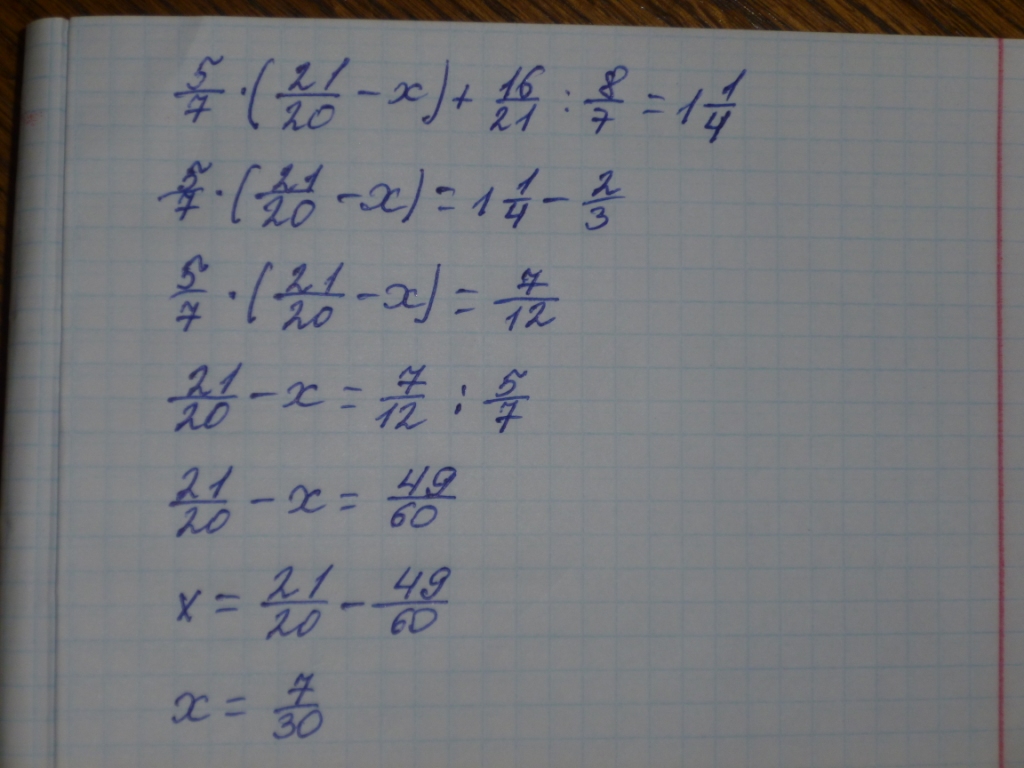 5/7 · (21/20 - x) + 16/21 : 8/7 = 1 1/4
5/7 · (21/20 - x) = 1 1/4 - 2/3
5/7 · (21/20 - x) = 7/12
21/20 - x = 7/12 : 5/7
21/20 - x = 49/60
x = 21/20 - 49/60
x = 7/30